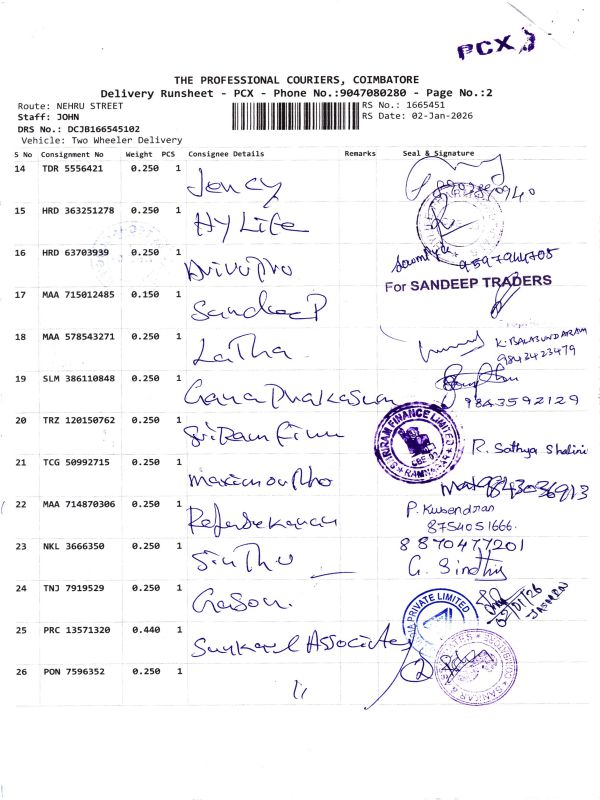 PCX
THE PROFESSIONAL COURIERS, COIMBATORE
Delivery Runsheet - PCX - Phone No.:9047080280 - Page No.:2
Route: NEHRU STREET
RS No.: 1665451
Staff: JOHN
RS Date: 02-Jan-2026
DRS No.: DCJB166545102
Vehicle: Two Wheeler Delivery
S No Consignment No Weight PCS Consignee Details Remarks Seal & Signature
14 TDR 5556421 0.250 1 Jency
15 HRD 363251278 0.250 1 Hy Life
16 HRD 63703939 0.250 1
9597944705
For SANDEEP TRADERS
17 MAA 715012485 0.150 1 Sandeep
18 MAA 578543271 0.250 1 Latha
K. BALASUNDARAM
9842423479
19 SLM 386110848 0.250 1 Gana Prakasam
9843592129
20 TRZ 120150762 0.250 1 Sri Ram Finu
SRIRAM FINANCE LIMITED
CBE
RAMNAGAR
R. Sathya Shalini
21 TCG 50992715 0.250 1
9843036913
22 MAA 714870306 0.250 1
P. Kusendran
8754051666.
23 NKL 3666350 0.250 1 Sinthu
8870477201
G. Sindhu
24 TNJ 7919529 0.250 1
PRIVATE LIMITED
02/01/26
JASMEN
25 PRC 13571320 0.440 1 Associates
26 PON 7596352 0.250 1 "
2